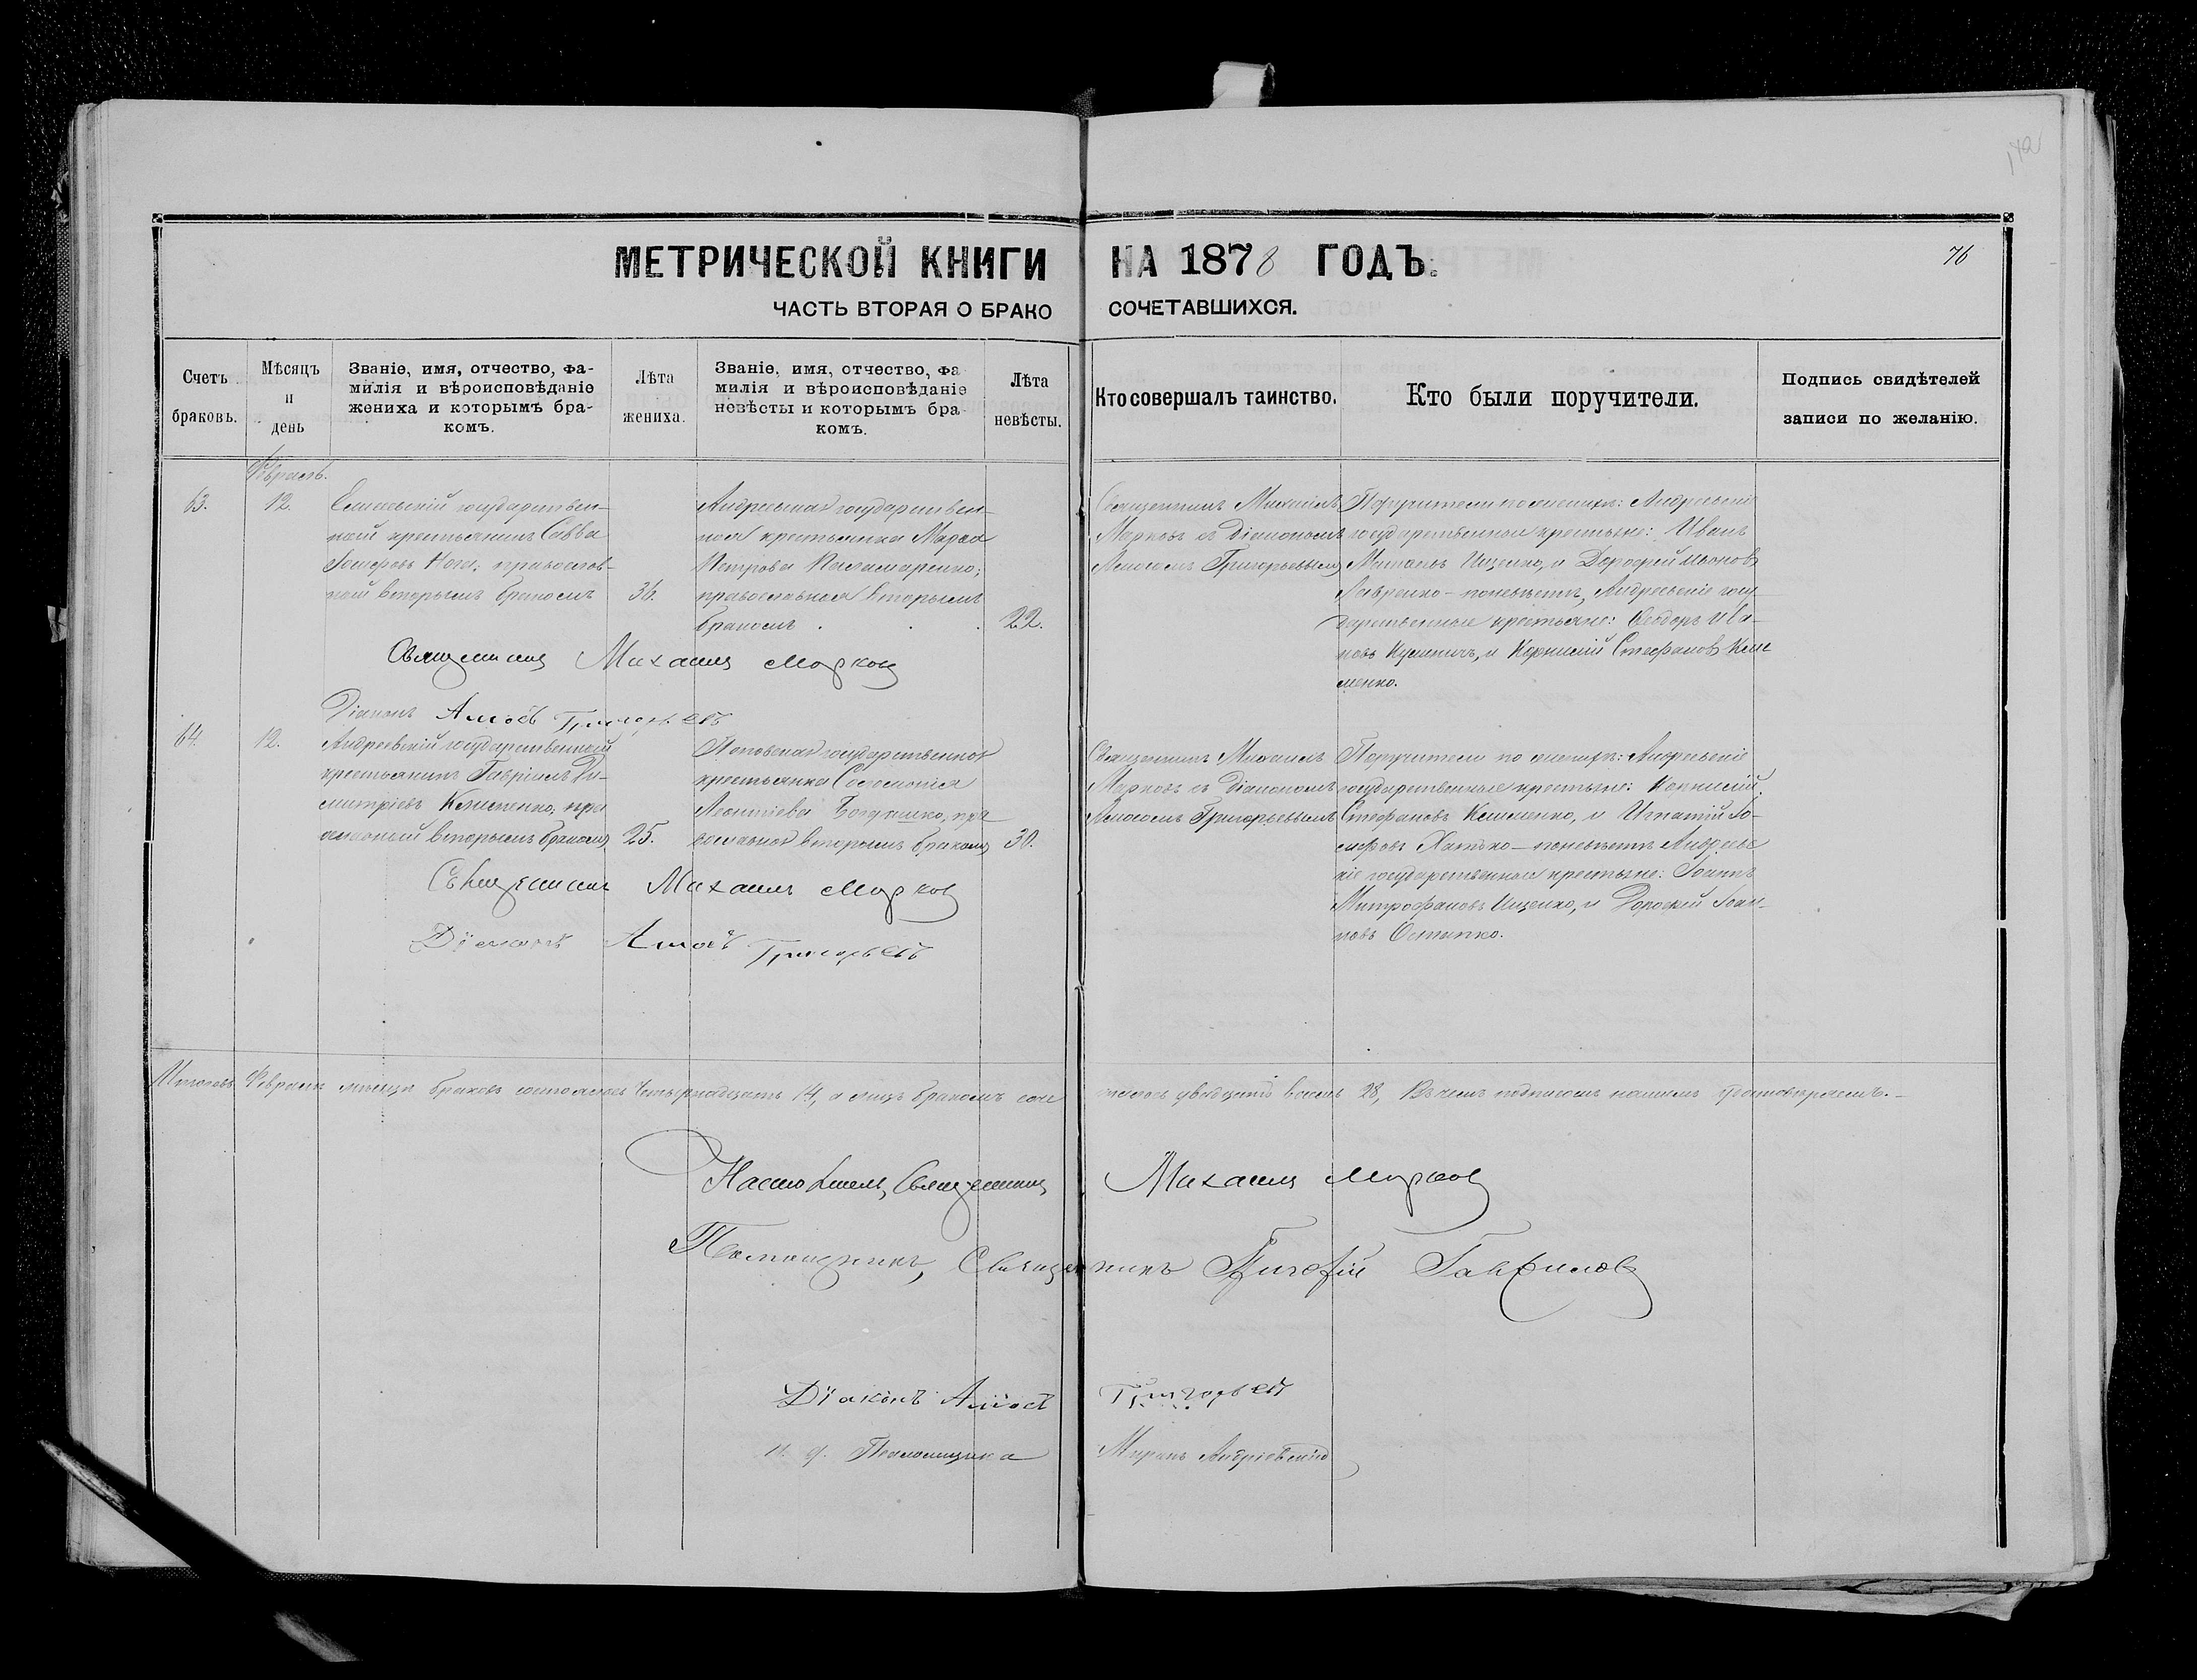 172
МЕТРИЧЕСКОЙ КНИГИ НА 1878 ГОДЪ.
76
ЧАСТЬ ВТОРАЯ О БРАКО СОЧЕТАВШИХСЯ.
Счетъ браковъ.
Мѣсяцъ и день
Званіе, имя, отчество, фа-
милія и вѣроисповѣданіе
жениха и которымъ бра-
комъ.
Лѣта жениха.
Званіе, имя, отчество, фа
милія и вѣроисповѣданіе
невѣсты и которымъ бра
комъ.
Лѣта невѣсты.
Кто совершалъ таинство.
Кто были поручители.
Подпись свидѣтелей
записи по желанію.
Февраль.
63.
12.
государствен-
ный крестьянинъ Савва
Іосифовъ православ-
ный вторымъ бракомъ
36.
Андреевская государствен-
ная крестьянка
Петрова Паламаренко;
православная вторымъ
бракомъ
22.
Священникъ Михаилъ
Марковъ съ Діакономъ
Амосомъ Григорьевымъ
Поручители по женихѣ: Андреевскіе
государственные крестьяне: Иванъ
Ищенко, и Дорофей
Лавренко - по невѣстѣ, Андреевскіе госу-
дарственные крестьяне: Ѳеодоръ Ива-
новъ и Корнилій Стефановъ Кли
менко.
Священникъ Михаилъ Марковъ
Діаконъ Амосъ Григорьевъ
64.
12.
Андреевскій государственный
крестьянинъ Гавріилъ Ди-
митріевъ Клименко; пра
вославный вторымъ бракомъ
25.
Поповская государственная
крестьянка Соломонія
Леонтіева Богушко, пра
вославная вторымъ бракомъ
30.
Священникъ Михаилъ
Марковъ съ Діакономъ
Амосомъ Григорьевымъ
Поручители по женихѣ: Андреевскіе
государственные крестьяне: Корнилій
Стефановъ Клименко, и Игнатій Іо-
сифовъ - по невѣстѣ Андреевс
кіе государственные крестьяне: Іоаннъ
Митрофановъ Ищенко, и Дорофей Іоан-
новъ Остапко.
Священникъ Михаилъ Марковъ
Діаконъ Амосъ Григорьевъ
Февралѣ мѣсяцѣ браковъ состоялось четырнадцать 14, а лицъ бракомъ соче талось двадцать восемь 28, Въ чемъ подписомъ нашимъ удостовѣряемъ.-
Настоятель, Священникъ Михаилъ Марковъ
Помощникъ, Священникъ Григорій Гаврилов
Діаконъ Амосъ Григорьевъ
и. д. Псаломщика Миронъ Андріевскій